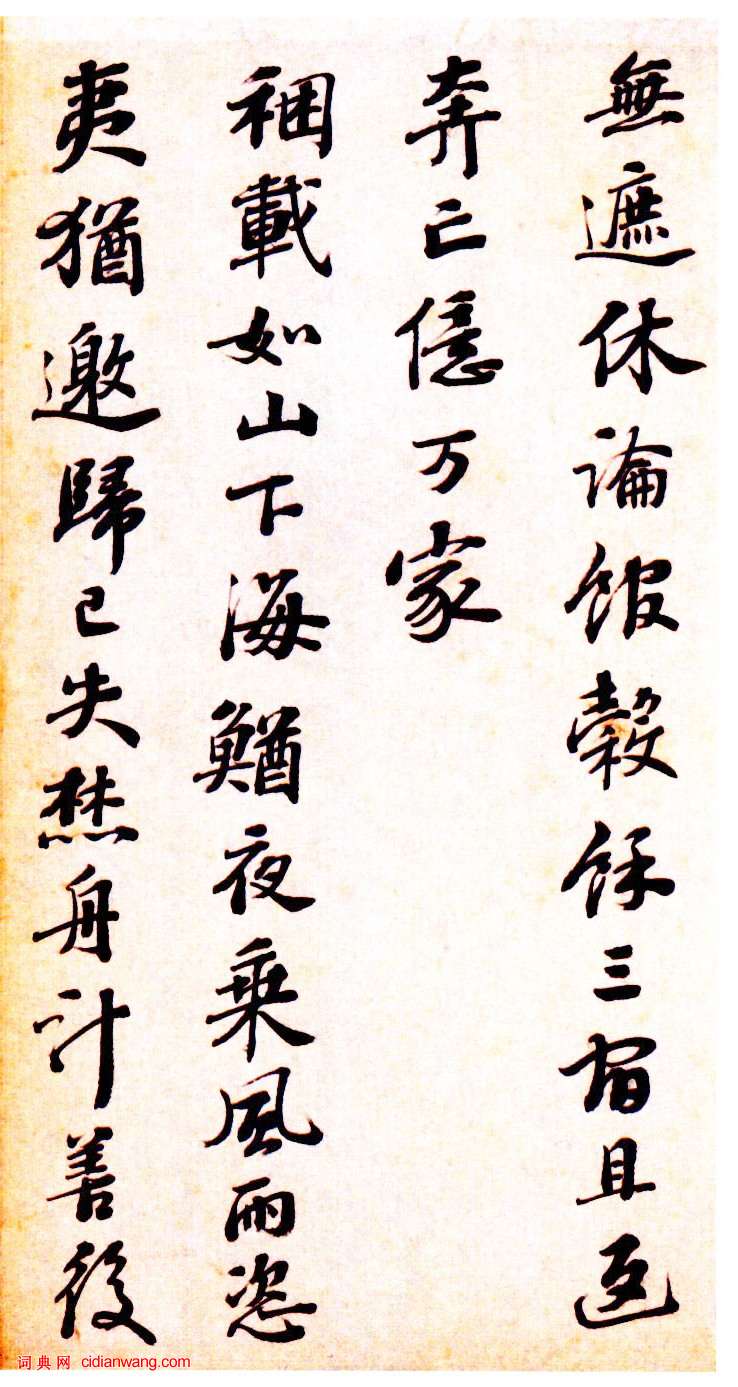 無遮休論館穀餘三宿且
奔亡億万家
稛載如山下海鰌夜乘風雨恣
夷猶邀歸已失焚舟計善後
词典网 cidianwang.com